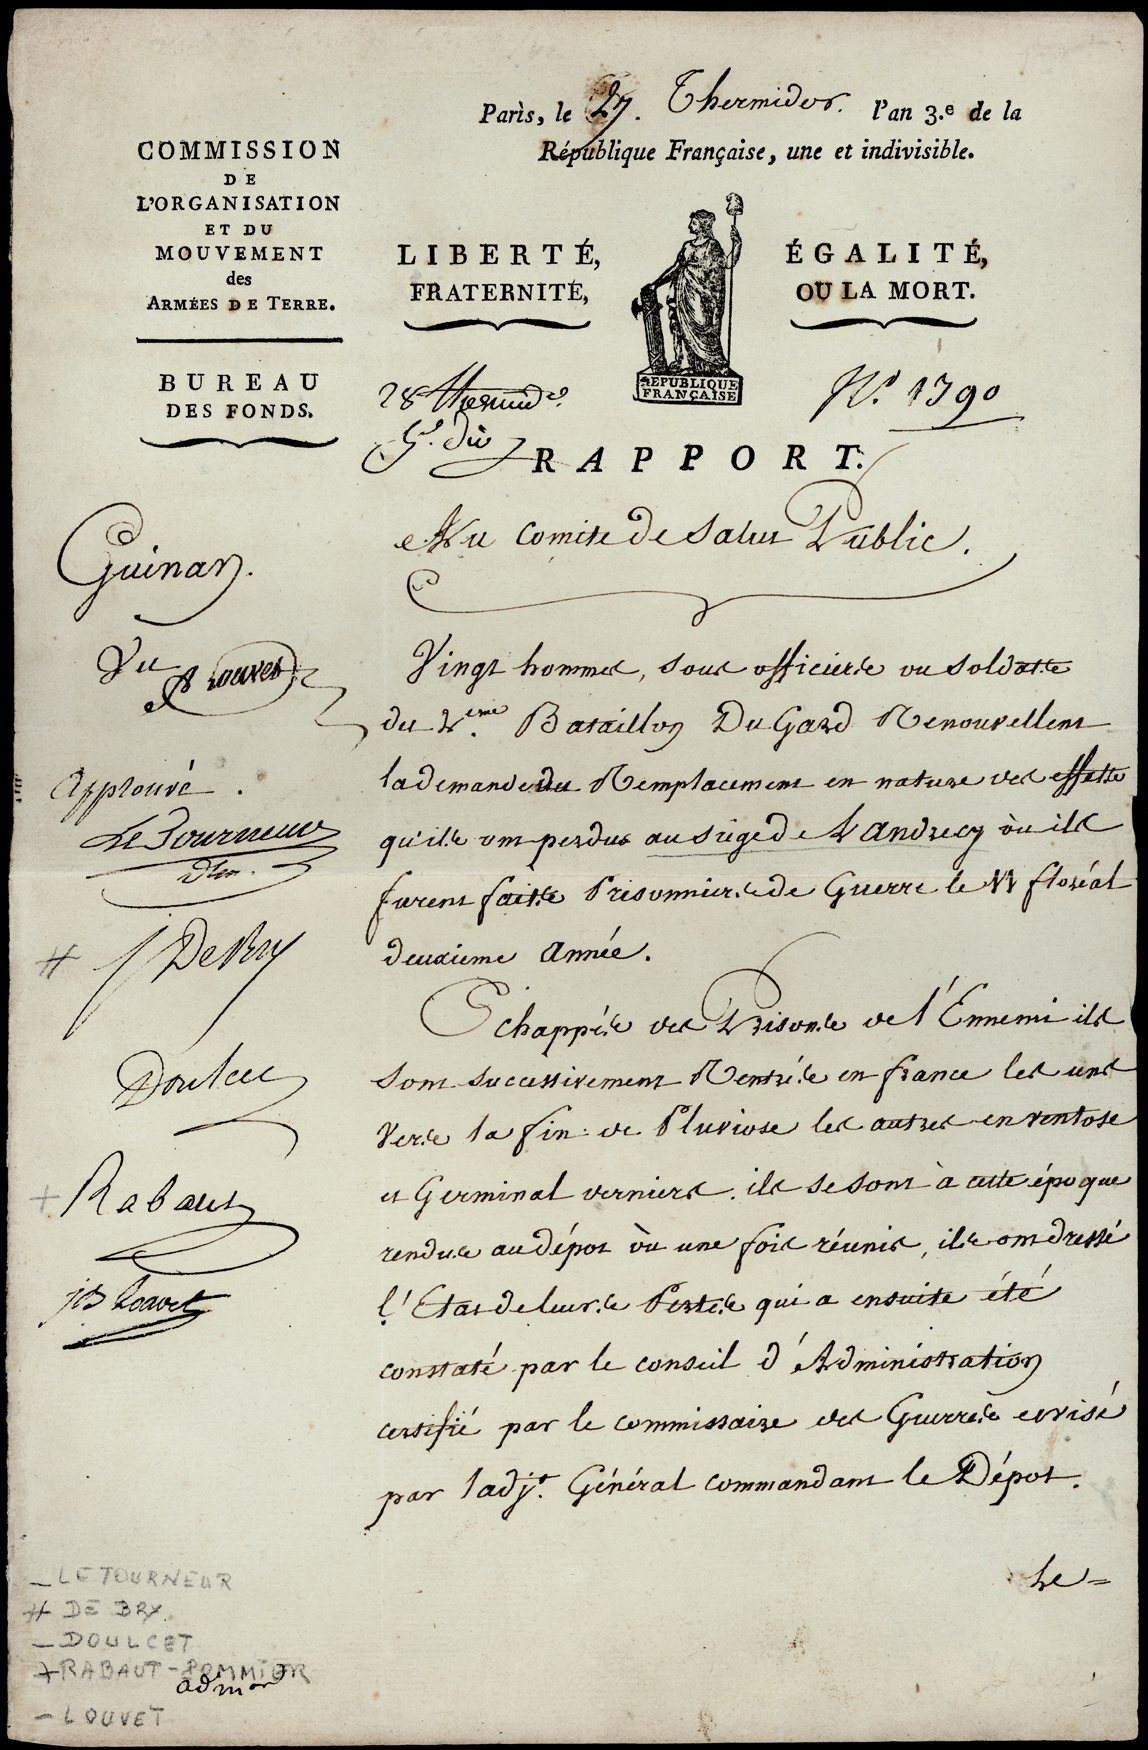 Paris, le 27. Thermidor. l'an 3.e de la
République Française, une et indivisible.
COMMISSION
DE
L'ORGANISATION
ET DU
MOUVEMENT
des
ARMÉES DE TERRE.
BUREAU
DES FONDS.
LIBERTÉ,
FRATERNITÉ,
ÉGALITÉ,
OU LA MORT.
RÉPUBLIQUE
FRANÇAISE
28 Thermid.
N.º 1390
RAPPORT.
Au Comité de Salut Public.
Guinan.
Vu
Approuvé.
Le Tourneur
# J DeBry
Doulcet
+ Rabaut
JB Louvet
Vingt hommes, sous officiers ou soldats
du 2.eme Bataillon Du Gard Renouvellent
la demande du Remplacement en nature des effets
qu'ils ont perdus au siège de Landrecy où ils
furent faits Prisonniers de Guerre le 11 floréal
deuxieme année.
Echappés des Prisons de l'Ennemi ils
sont successivement Rentrés en france les uns
vers la fin de Pluviose les autres en ventose
et Germinal derniers. ils se sont à cette époque
rendus au dépot où une fois réunis, ils ont dressé
l'Etat de leurs Pertes qui a ensuite été
constaté par le conseil d'Administration
certifié par le commissaire des Guerres et visé
par ladj.t Général commandant le Dépot.
Le =
_ LETOURNEUR
# DE BRY
_ DOULCET
+ RABAUT-POMMIER
admor
_ LOUVET